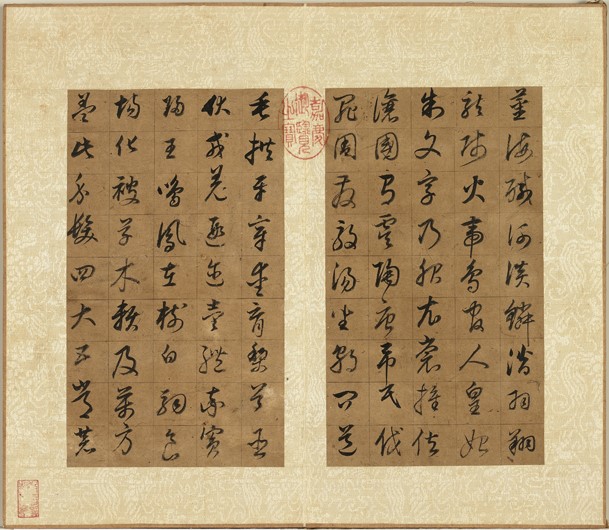 薑海鹹河淡鱗潛羽翔
龍師火帝鳥官人皇始
制文字乃服衣裳推位
讓國有虞陶唐弔民伐
罪周發殷湯坐朝問道
嘉慶
御覽
之寶
垂拱平章愛育黎首臣
伏戎羌遐邇壹體率賓
歸王鳴鳳在樹白駒食
場化被草木賴及萬方
蓋此身髮四大五常恭